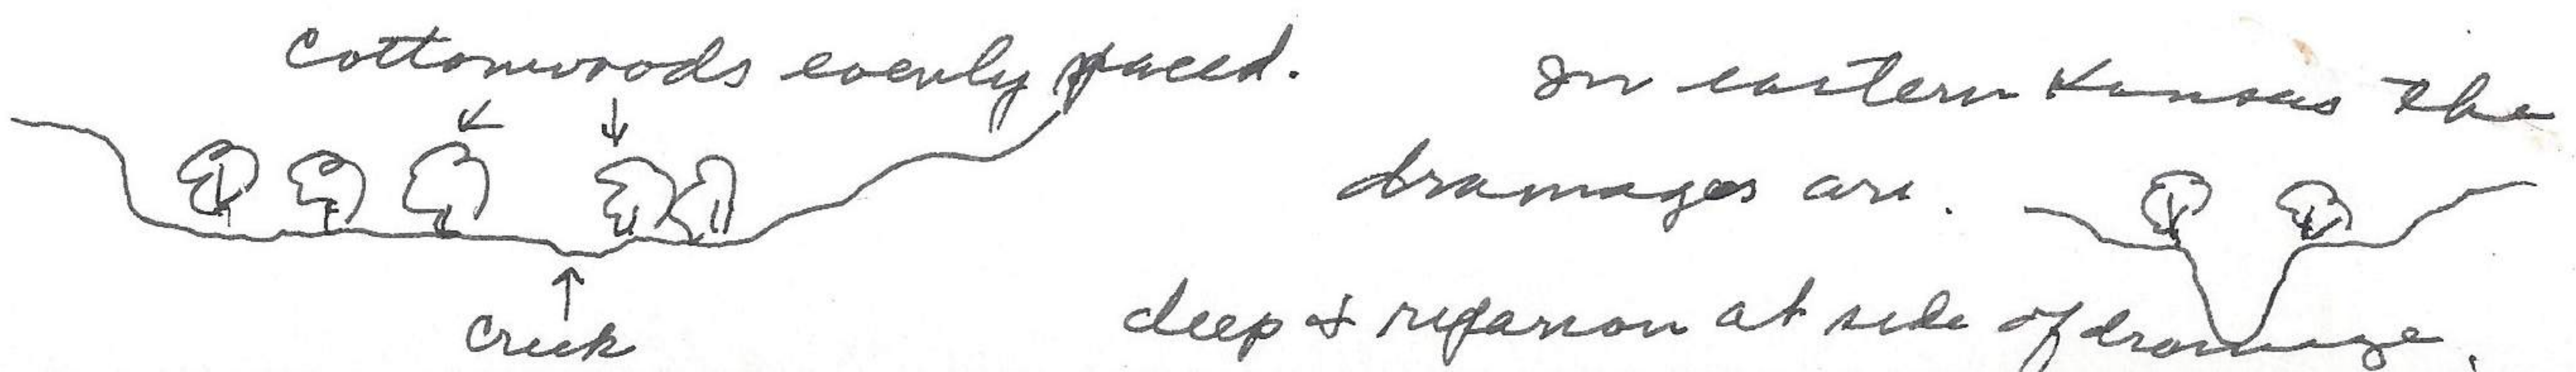 Cottonwoods evenly spaced. In eastern Kansas the
drainages are.
deep & riparian at side of drainage.
Creek